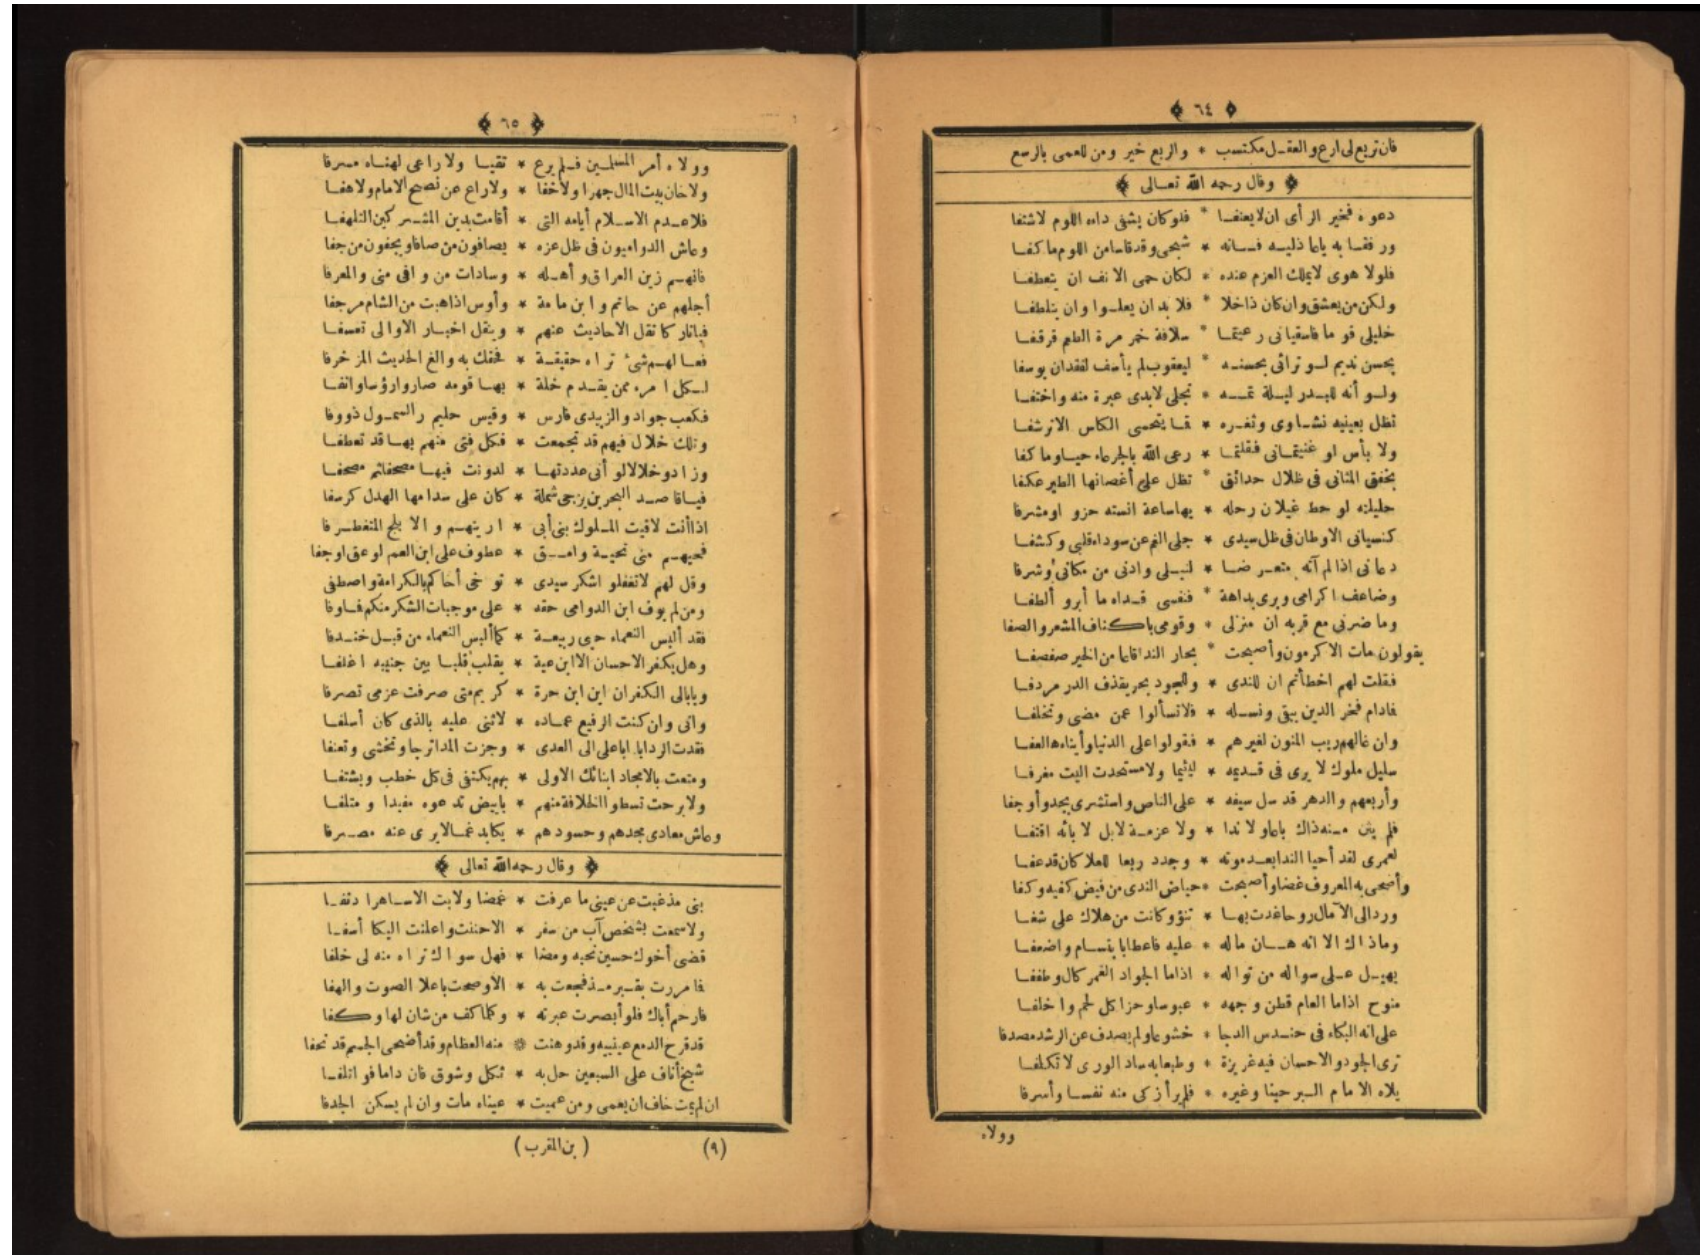 ﴿ ٦٤ ﴾
فان تربع لى ارع والعقل مكتسب * والربع خير ومن للعمى بالرسع
﴿ وقال رحمه الله تعالى ﴾
دعوه فخير الرأى ان لا يعنفا * فلو كان يشفى داءه اللوم لاشتفا
ورفقا به ياعاذليه فانه * شجى وقد قاسا من اللوم ما كفا
فلولا هوى لا يملك العزم عنده * لكان حمى الانف ان يتعطفا
ولكن من يعشق وان كان ذاخلا * فلا بد ان يعلوا وان يتلطفا
خليلى قوما فاسقيانى رعيتما * سلافة خمر مرة الطعم قرقفا
بحسن نديم لو ترائى بحسنه * ليعقوب لم يأسف لفقدان يوسفا
ولو أنه للبدر ليلة تمه * تجلى لابدى عبرة منه واختفا
تظل بعينيه نشاوى وثغره * فما يتحسى الكاس الا ترشفا
ولا بأس او غنيتمانى فقلتما * رعى الله بالجرعاء حيا وما كفا
بخفق المثانى فى ظلال حدائق * تظل على أغصانها الطير عكفا
حليلته لو حط غيلان رحله * بها ساعة انسته حزو او مشرفا
كنسيانى الاوطان فى ظل سيدى * جلى الغم عن سوداء قلبى وكشفا
دعانى اذا لم آته متعرضا * لنيلى وادنى من مكانى وشرفا
وضاعف اكرامى وبرى بداهة * فنفسى فداه ما أبر وألطفا
وما ضرنى مع قربه ان منزلى * وقومى باكناف المشعر والصفا
يقولون مات الاكرمون وأصبحت * بحار الندا قاعا من الخير صفصفا
فقلت لهم اخطأتم ان للندى * وللجود بحر يقذف الدر مردفا
فادام فخر الدين يبقى ونسله * فلا تسألوا عمن مضى وتخلفا
وان غالهم ريب المنون لغيرهم * فقولوا على الدنيا وأبناءها العفا
سليل ملوك لا يرى فى قديمه * لئيما ولا مستحدث البيت مغرفا
وأربعهم والدهر قد سل سيفه * على الناس واستشرى بجد وأوجفا
فلم يثن منه ذاك باعا ولا ندا * ولا عزمة لا بل لا بائه اقتفا
لعمرى لقد أحيا الندا بعد موته * وجدد ربعا للعلا كان قد عفا
وأضحى به المعروف غضا وأصبحت * حياض الندى من فيض كفيه وكفا
ورد الى الآمال روحا غدت بها * تنؤ وكانت من هلاك على شفا
وماذاك الا انه هان ماله * عليه فاعطا بابتسام واضعفا
يهيل على سواله من نواله * اذاما الجواد الغمر كال وطففا
منوح اذاما العام قطن وجهه * عبوسا وحزا كل لحم واخلفا
على انه البكاء فى حندس الدجا * خشوعا ولم يصدف عن الرشد مصدفا
ترى الجود والاحسان فيه غريزة * وطبعا به ساد الورى لا تكلفا
بلاه الامام البر حينا وغيره * فلم ير أزكى منه نفسا وأسرفا
وولاه
﴿ ٦٥ ﴾
وولاه أمر المسلمين فلم يرع * تقيا ولا راعى لهناه مسرفا
ولا خان بيت المال جهرا ولا خفا * ولا راع عن نصح الامام ولا هفا
فلا عدم الاسلام أيامه التى * أقامت بدين المشركين التلهفا
وعاش الدواميون فى ظل عزه * يصافون من صافا ويجفون من جفا
فانهم زين العراق وأهله * وسادات من وافى منى والمعرفا
أجلهم عن حاتم وابن مامة * وأوس اذا هبت من الشام مرجفا
فيا تاركا نقل الاحاديث عنهم * وينقل اخبار الاوالى تعسفا
فعا لهم شئ تراه حقيقة * فخفك به والغ الحديث المزخرفا
لكل امرء ممن يقدم خلة * بها قومه صاروا رؤسا وانفا
فكعب جواد والزبيدى فارس * وقيس حليم والسمول ذووفا
وتلك خلال فيهم قد تجمعت * فكل فتى منهم بها قد تعطفا
وزادو خلالا لو أنى عددتها * لدونت فيها مصحفا ثم مصحفا
فيا قاصد البحرين يزجى شملة * كان على سدامها الهدل كرسفا
اذا أنت لاقيت الملوك بنى أبى * اريتهم والابلج المتغطرفا
فحيهم منى تحية وامق * عطوف على ابن العم لو عق او جفا
وقل لهم لا تغفلو اشكر سيدى * توخى أخاكم بالكرامة واصطفى
ومن لم يوف ابن الدوامى حقه * على موجبات الشكر منكم فاوفا
فقد ألبس النعماء حيى ربيعة * كما ألبس النعماء من قبل خندفا
وهل يكفر الاحسان الا ابن عية * يقلب قلبا بين جنبيه اغلفا
ويابالى الكفران اين ابن حرة * كريم متى صرفت عزمى تصرفا
وانى وان كنت الرفيع عماده * لاثنى عليه بالذى كان أسلفا
فقدت الردايا اباعلى الى العدى * وجزت المدا ترجا وتخشى وتعنفا
ومتعت بالامجاد ابنائك الاولى * بهم يكتفى فى كل خطب ويشتفا
ولا برحت تسطوا الخلافة منهم * بابيض تدعوه مفيدا ومتلفا
وعاش معادى مجدهم وحسودهم * يكابد غما لا يرى عنه مصرفا
﴿ وقال رحمه الله تعالى ﴾
بنى مذ غبت عن عينى ما عرفت * غمضا ولا بت الا ساهرا دنفا
ولا سمعت بشخص آب من سفر * الا حننت واعلنت البكا أسفا
قضى أخوك حسين نحبه ومضا * فهل سواك تراه منه لى خلفا
فا مررت بقبر مذ فجعت به * الا وصحت باعلا الصوت والهفا
فارحم أباك فلو أبصرت عبرته * وكلما كف من شان لها وكفا
قد قرح الدمع عينيه وقد وهنت * منه العظام وقد أضحى الجسم قد نحفا
شيخ أناف على السبعين حل به * ثكل وشوق فان داما فو اتلفا
ان لم يمت خاف ان يعمى ومن عميت * عيناه مات وان لم يسكن الجدفا
(٩) (بن المقرب)